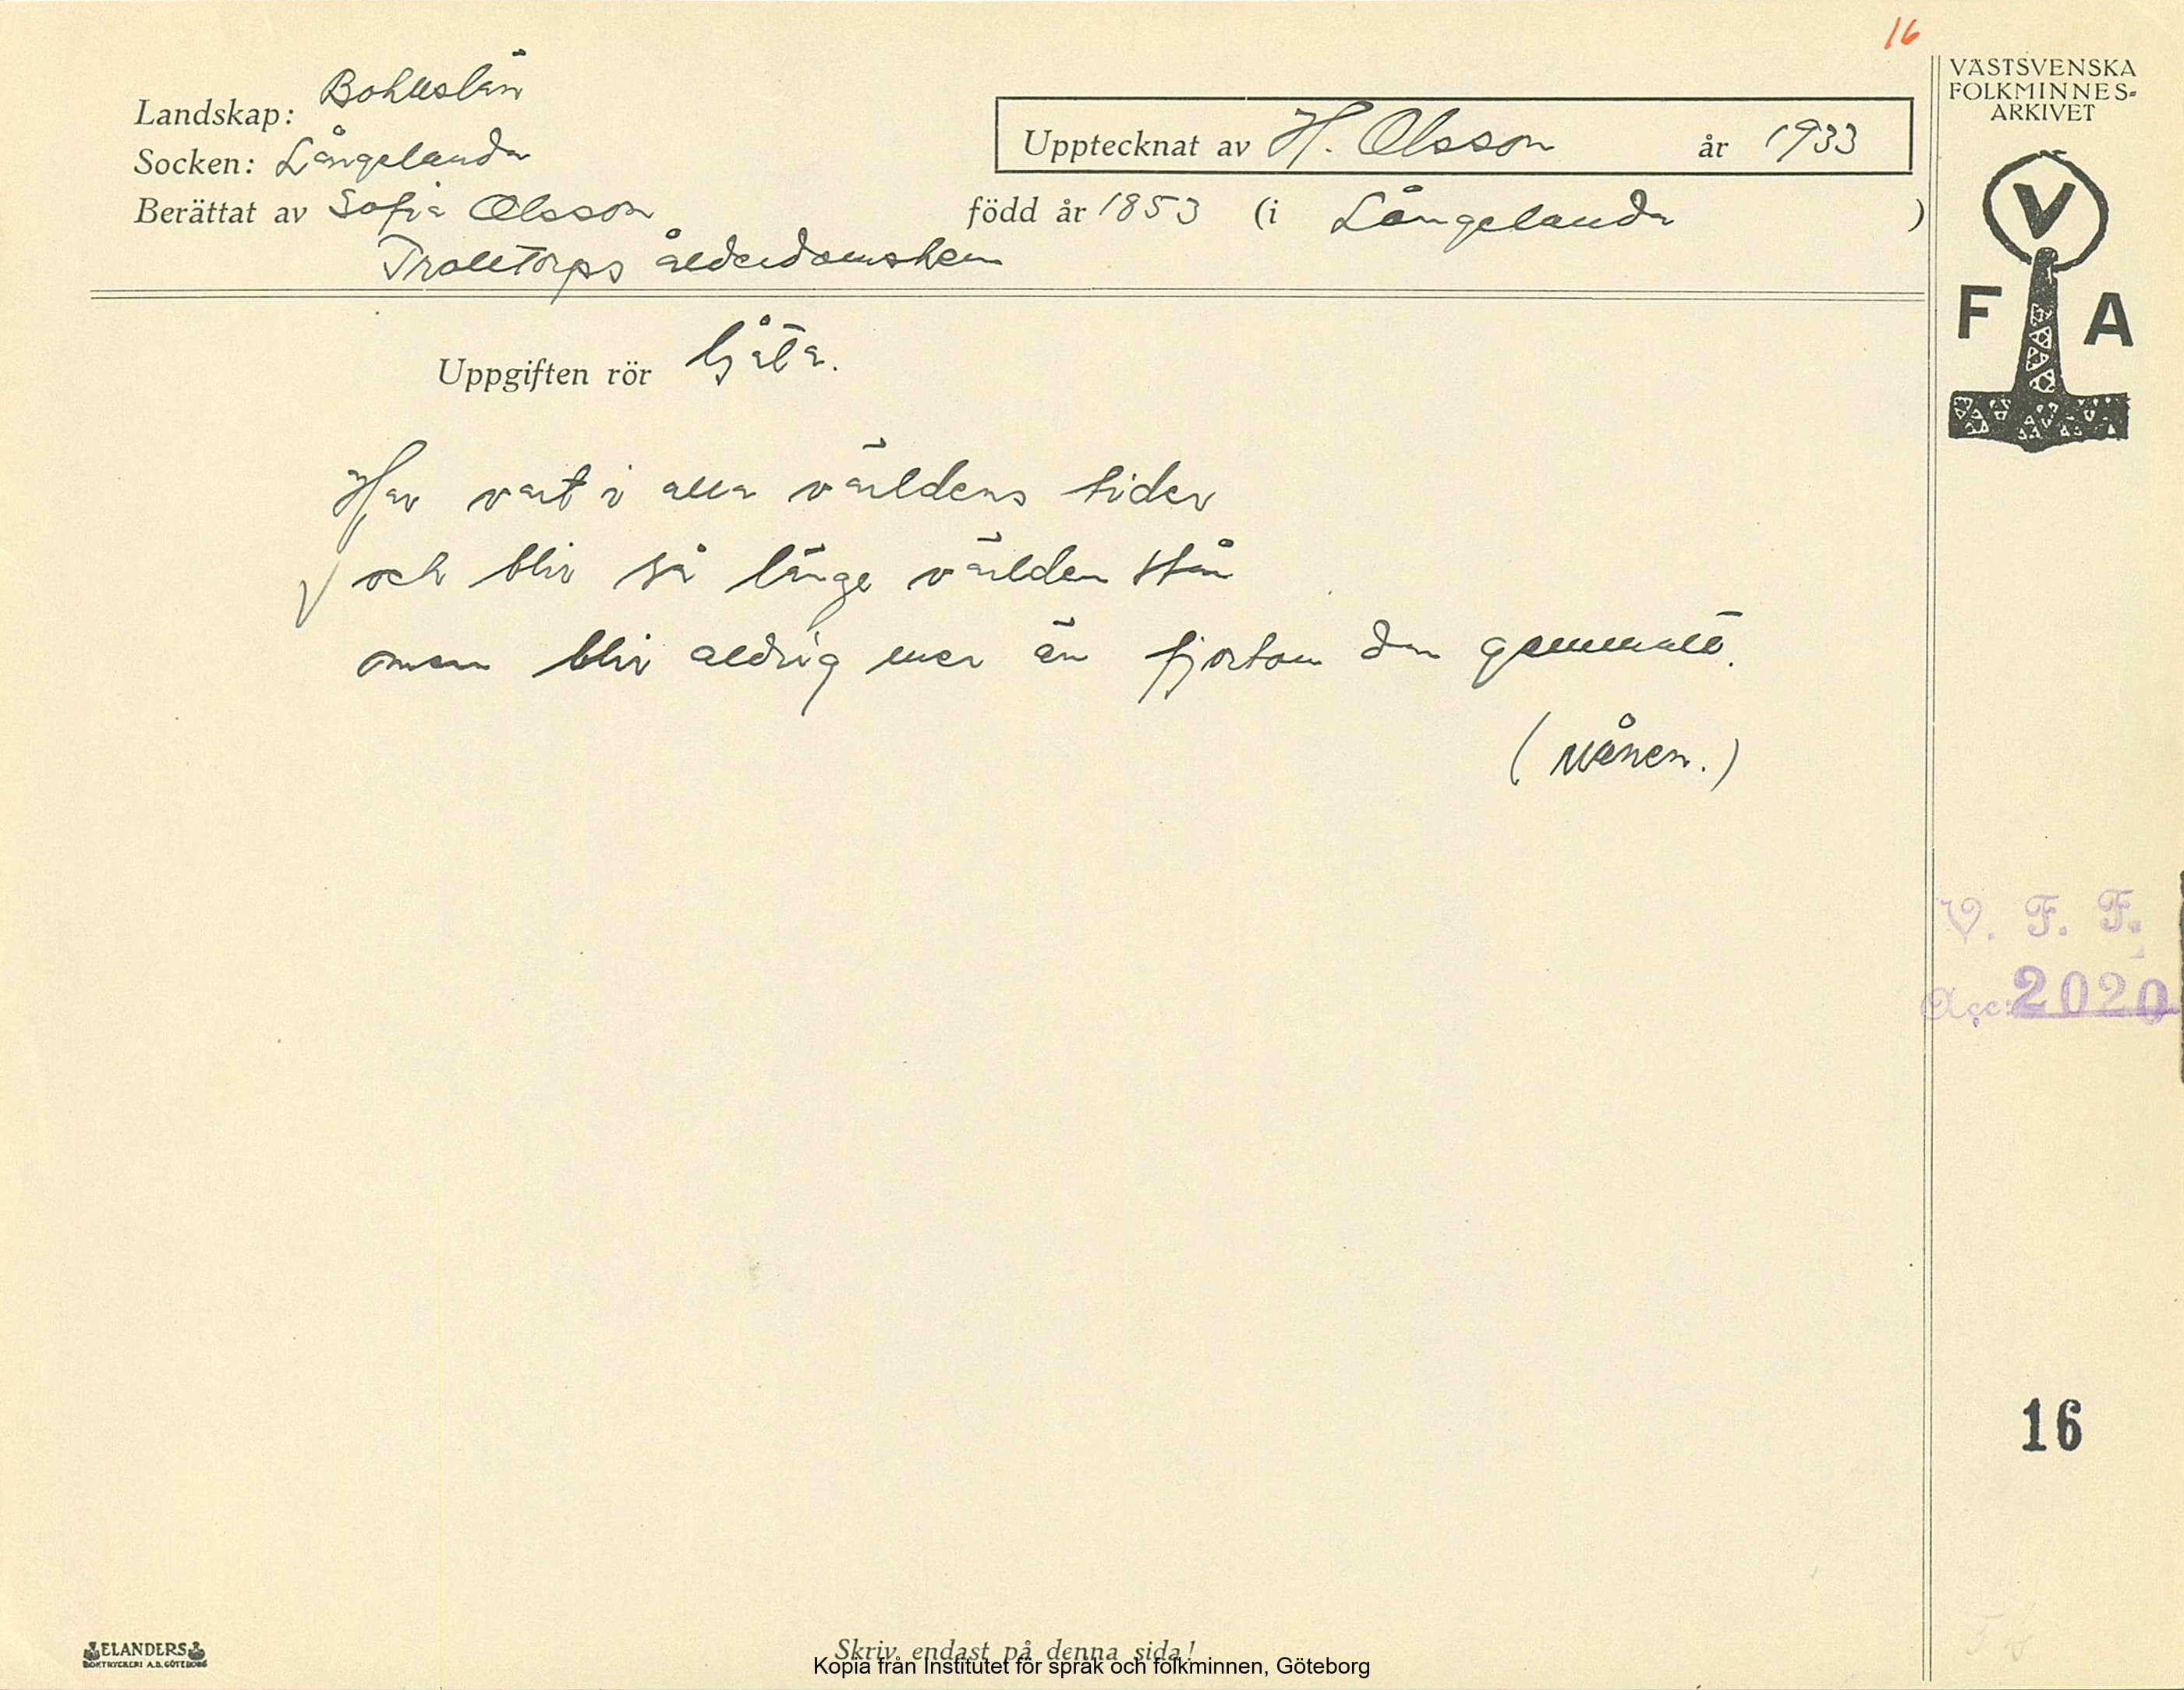 16
VÄSTSVENSKA
FOLKMINNES-
ARKIVET
V
F A
Landskap: Bohuslän
Socken: Långelanda
Berättat av Sofia Olsson
Trolltorps ålderdomshem
Upptecknat av H. Olsson år 1933
född år 1853 (i Långelanda )
Uppgiften rör Gåta.
Har vart i alla världens tider
och blir så länge världen står
men blir aldrig mer än fjorton da gammalt.
(Månen.)
V. F. F.
Acc: 2020
16
ELANDERS
BOKTRYCKERI A.B. GÖTEBORG
Skriv endast på denna sida!
Kopia från Institutet för språk och folkminnen, Göteborg